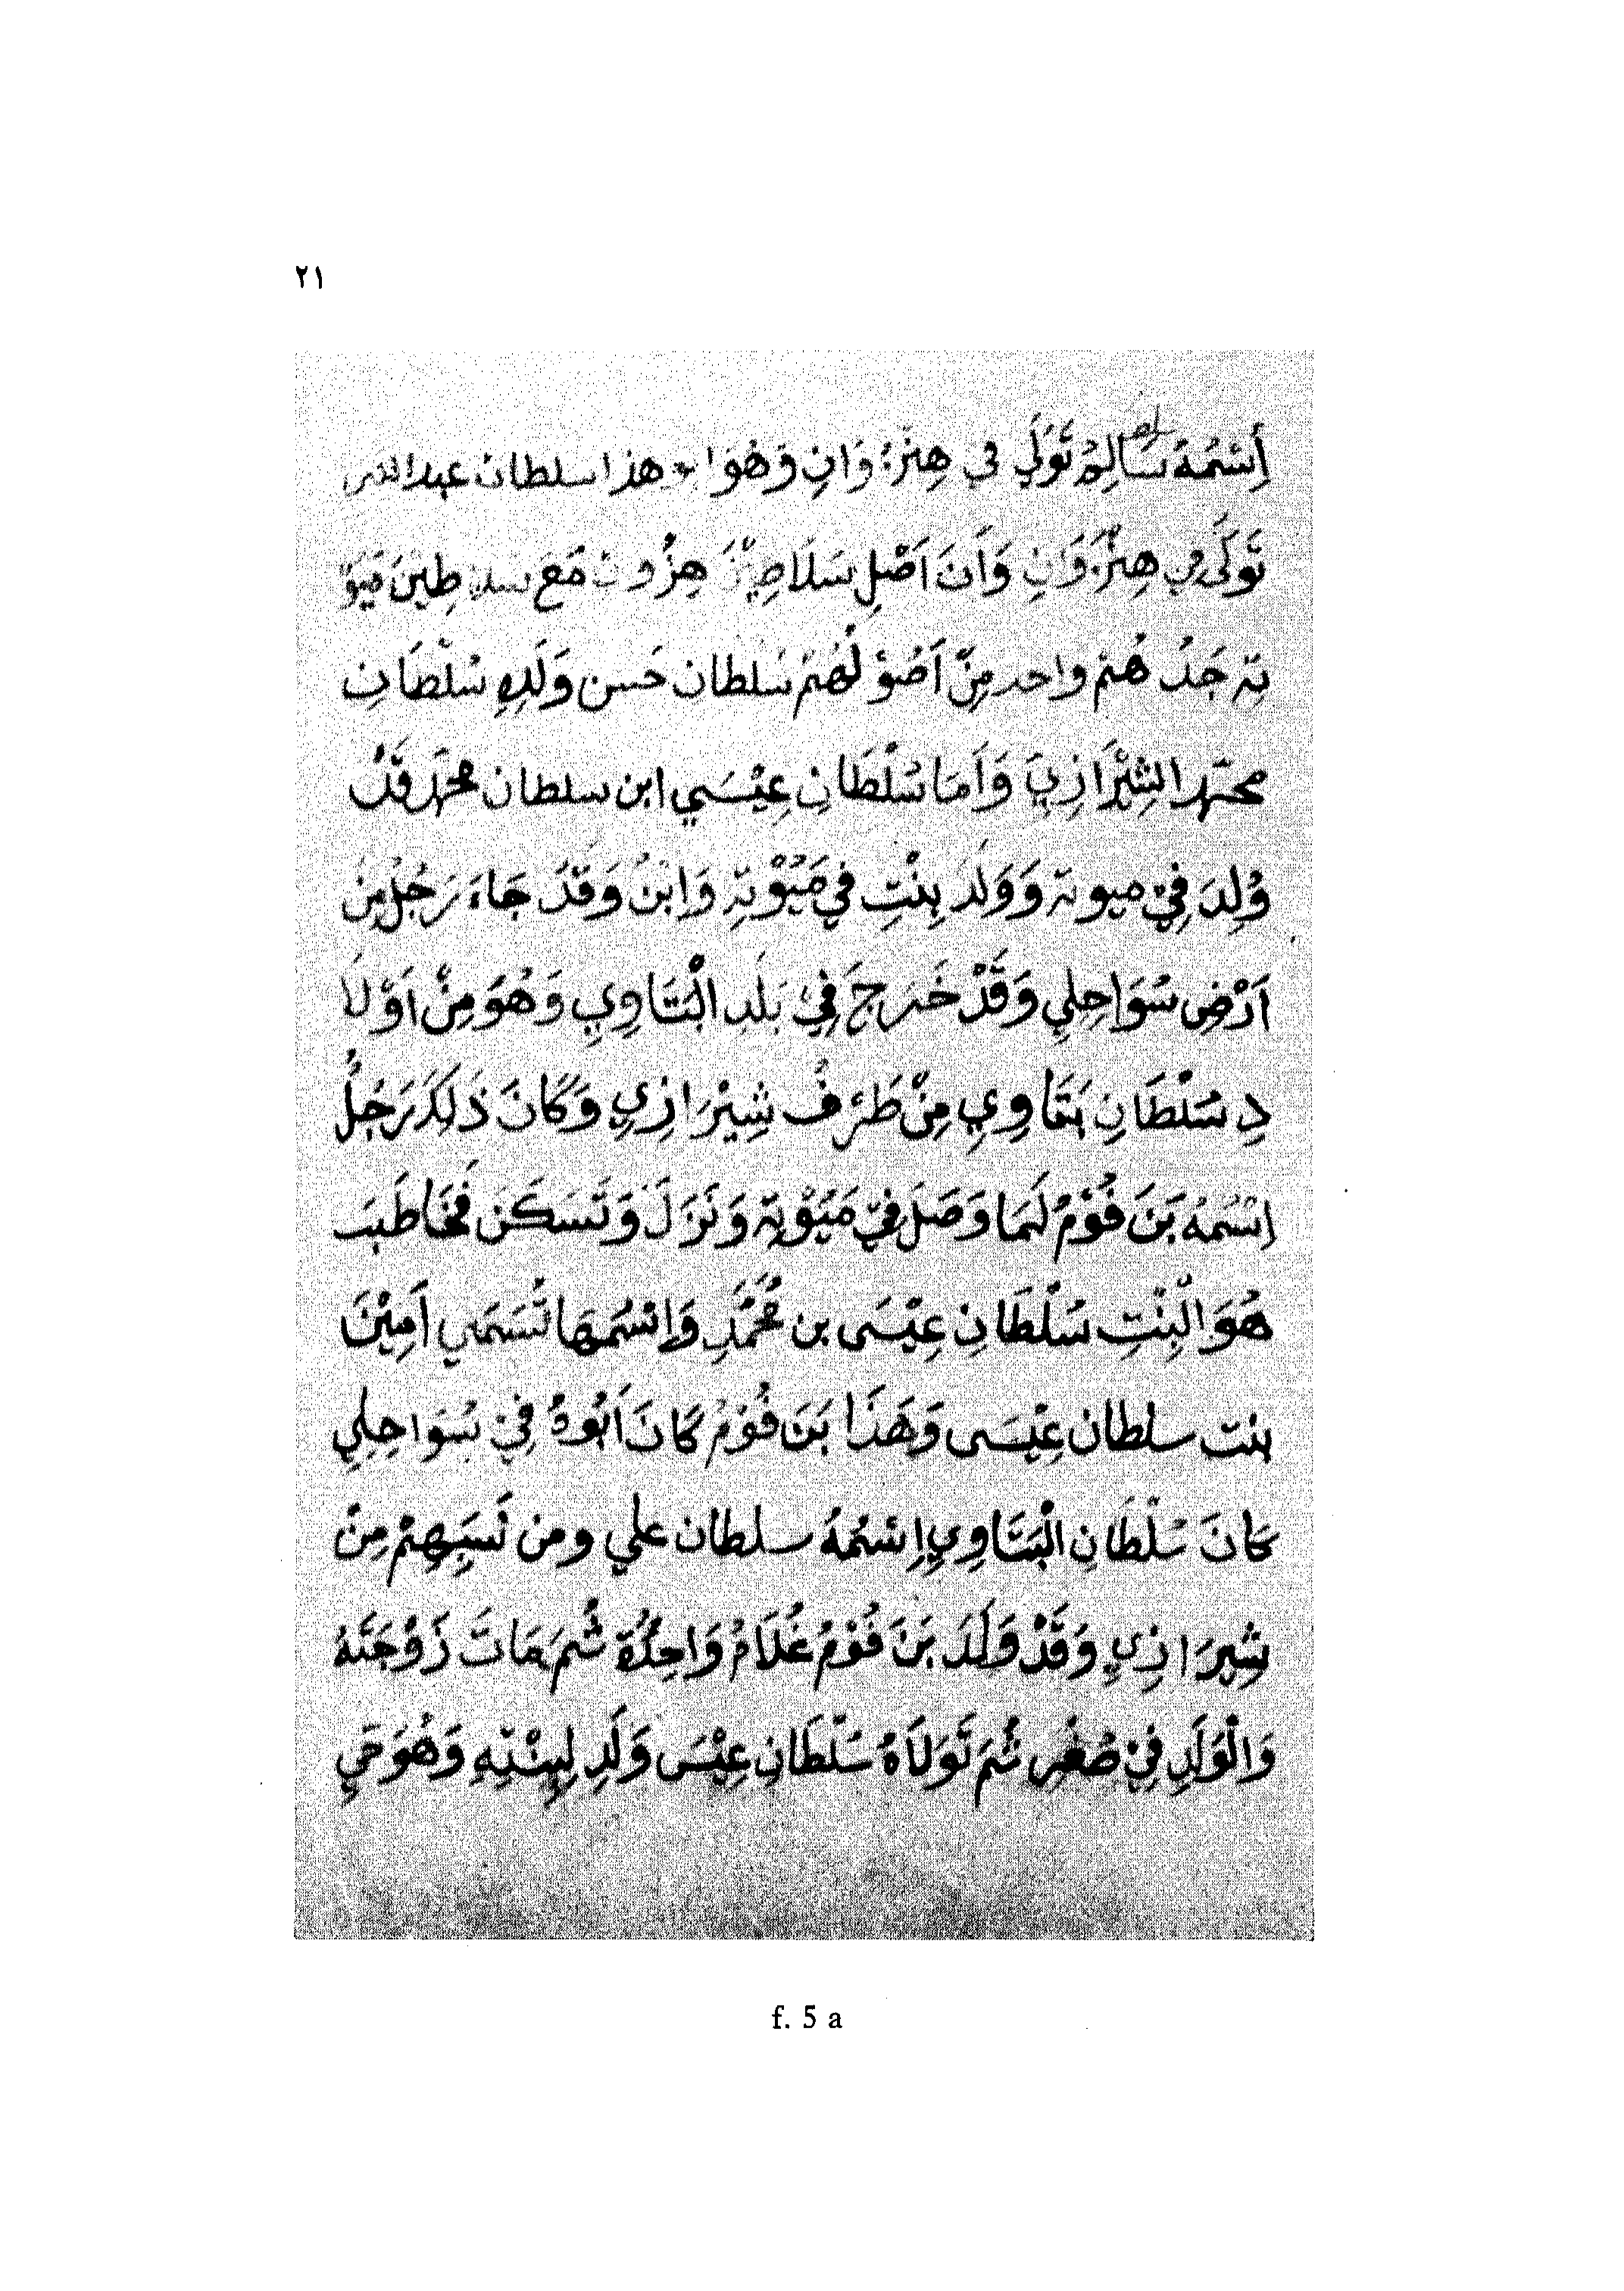 ٢١
اَسْمُهُ سَالِمْ تَوَلَّي في هِنْزُ؛ وَانِ وَهُوَ هذا سلطان عبدالله
تَوَلَّى هِنْزُ؛ وَانِ وَاَنَ اَصْلِ سَلَاطِيْنَ هِنْزُوَن مَعَ سلاطِينَ مَيَوْ
تِة جَدُ هُمْ واحد مِنْ اَصُوْ لُهُمْ سَلطان حَسن وَلَدِهِ سُلْطَانِ
محمّد الشِيْرَازِيّ وَاَمَا سُلْطَانِ عِيْسَي ابن سلطان محمّد قَدْ
وُلِدَ فِيْ ميوتة وَوَلَدَ بِنْتِ في مَيُوْتَةِ وَابْنُ وَقَدْ جَاءَ رَجُلْ مِنْ
اَرْضِ سُوَاحِلِي وَقَدْ خَرَجَ فِيْ بَلَدِ الْبَتَاوِي وَهُوَ مِنْ اَوْلَا
دِ سُلْطَانِ بَتَاوِي مِنْ طَرَفُ شِيْرَازِي وَكَانَ ذَلِكَ رَجُلُ
اِسْمُهُ بَنَ فُوْمُ لَمَا وَصَلَ فِيْ مَيُوْتِة وَنَزَلَ وَتَسَكَنَ فَخَاطَبَ
هُوَ الْبِنْتِ سُلْطَانِ عِيْسَى بن مُحَمَّدِ وَاِسْمُهَا تُسَمَي اَمِيْنَ
بنت سلطان عِيْسَى وَهَذَا بَنَ فُوْمُ كَانَ اَبُوهُ فِيْ سُوَاحِلِي
كَانَ سُلْطَانِ الْبَتَاوِيِ اِسْمُهُ سلطان علي ومن نَسَبِهِمْ مِنْ
شِيْرَازِي وَقَدْ وَلَدَ بَنَ فُوْمُ غُلَامُ وَاحِدُة ثُمَ مَاتَ زَوْجَتَهُ
وَالْوَلَدِ فِيْ صُغْرِ ثُمَ تَوَلَاهُ سُلْطَانِ عِيْسَى وَلَدِ لِبِنْتِهِ وَهُوَ حَيِ
f. 5 a